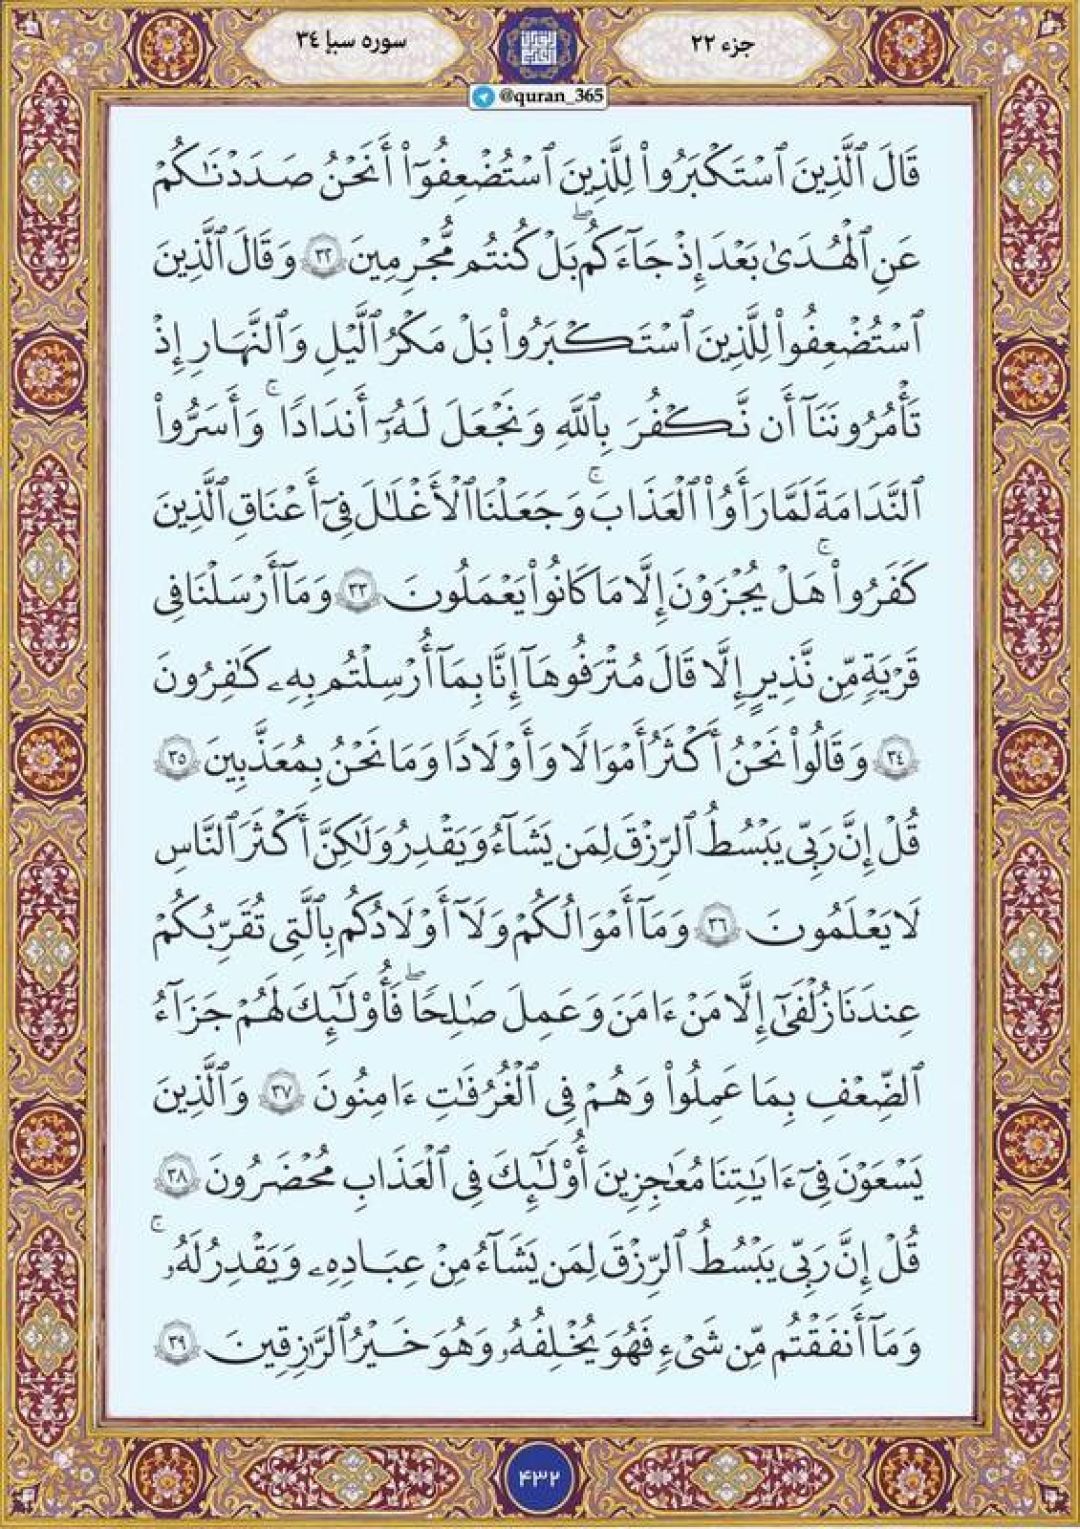 جزء ٢٢
سوره سبإ ٣٤
@quran_365
قَالَ ٱلَّذِينَ ٱسْتَكْبَرُوا۟ لِلَّذِينَ ٱسْتُضْعِفُوٓا۟ أَنَحْنُ صَدَدْنَـٰكُمْ
عَنِ ٱلْهُدَىٰ بَعْدَ إِذْ جَآءَكُم ۖ بَلْ كُنتُم مُّجْرِمِينَ ٣٢ وَقَالَ ٱلَّذِينَ
ٱسْتُضْعِفُوا۟ لِلَّذِينَ ٱسْتَكْبَرُوا۟ بَلْ مَكْرُ ٱلَّيْلِ وَٱلنَّهَارِ إِذْ
تَأْمُرُونَنَآ أَن نَّكْفُرَ بِٱللَّهِ وَنَجْعَلَ لَهُۥٓ أَندَادًا ۚ وَأَسَرُّوا۟
ٱلنَّدَامَةَ لَمَّا رَأَوُا۟ ٱلْعَذَابَ ۚ وَجَعَلْنَا ٱلْأَغْلَـٰلَ فِىٓ أَعْنَاقِ ٱلَّذِينَ
كَفَرُوا۟ ۚ هَلْ يُجْزَوْنَ إِلَّا مَا كَانُوا۟ يَعْمَلُونَ ٣٣ وَمَآ أَرْسَلْنَا فِى
قَرْيَةٍ مِّن نَّذِيرٍ إِلَّا قَالَ مُتْرَفُوهَآ إِنَّا بِمَآ أُرْسِلْتُم بِهِۦ كَـٰفِرُونَ
٣٤ وَقَالُوا۟ نَحْنُ أَكْثَرُ أَمْوَالًا وَأَوْلَادًا وَمَا نَحْنُ بِمُعَذَّبِينَ ٣٥
قُلْ إِنَّ رَبِّى يَبْسُطُ ٱلرِّزْقَ لِمَن يَشَآءُ وَيَقْدِرُ وَلَـٰكِنَّ أَكْثَرَ ٱلنَّاسِ
لَا يَعْلَمُونَ ٣٦ وَمَآ أَمْوَالُكُمْ وَلَآ أَوْلَادُكُم بِٱلَّتِى تُقَرِّبُكُمْ
عِندَنَا زُلْفَىٰٓ إِلَّا مَنْ ءَامَنَ وَعَمِلَ صَـٰلِحًا ۖ فَأُو۟لَـٰٓئِكَ لَهُمْ جَزَآءُ
ٱلضِّعْفِ بِمَا عَمِلُوا۟ وَهُمْ فِى ٱلْغُرُفَـٰتِ ءَامِنُونَ ٣٧ وَٱلَّذِينَ
يَسْعَوْنَ فِىٓ ءَايَـٰتِنَا مُعَـٰجِزِينَ أُو۟لَـٰٓئِكَ فِى ٱلْعَذَابِ مُحْضَرُونَ ٣٨
قُلْ إِنَّ رَبِّى يَبْسُطُ ٱلرِّزْقَ لِمَن يَشَآءُ مِنْ عِبَادِهِۦ وَيَقْدِرُ لَهُۥ ۚ
وَمَآ أَنفَقْتُم مِّن شَىْءٍ فَهُوَ يُخْلِفُهُۥ وَهُوَ خَيْرُ ٱلرَّٰزِقِينَ ٣٩
۴۳۲